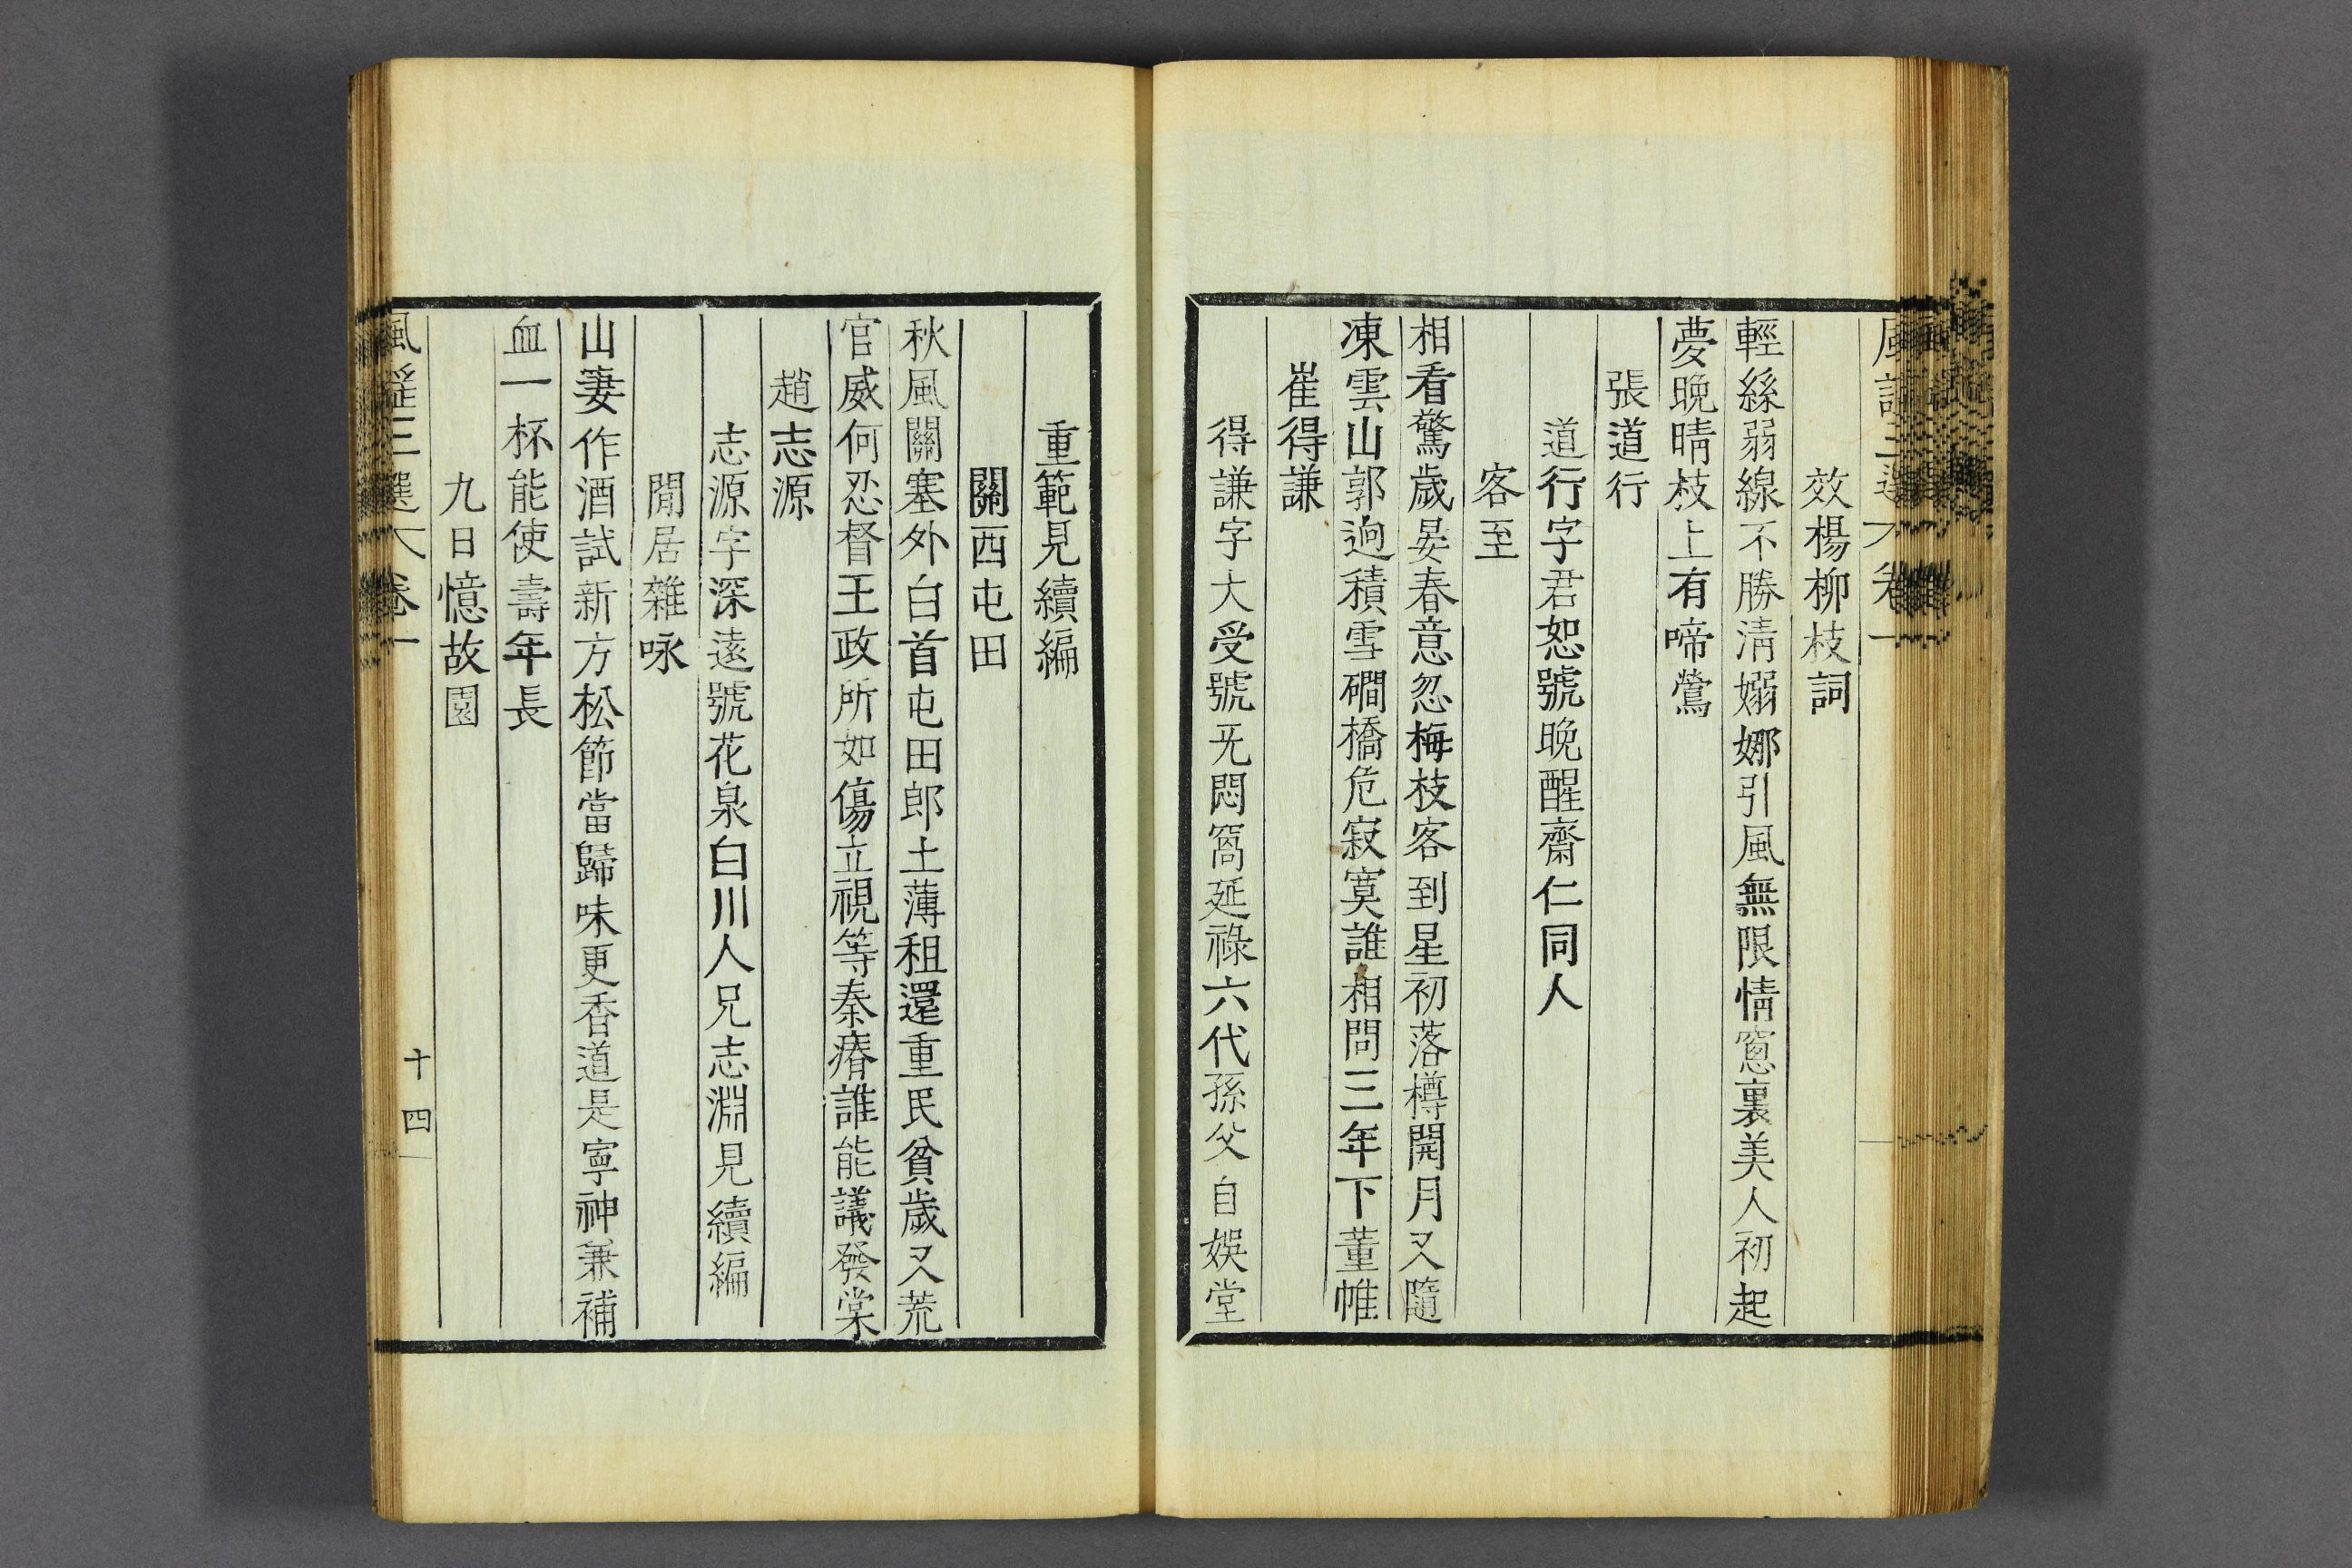 風謠三選 卷一
效楊柳枝詞
輕絲弱線不勝清嫋娜引風無限情窻裏美人初起
夢晩晴枝上有啼鶯
張道行
道行字君恕號晩醒齋仁同人
客至
相看驚歲晏春意忽梅枝客到星初落樽開月又隨
凍雲山郭逈積雪磵橋危寂寞誰相問三年下董帷
崔得謙
得謙字大受號旡悶窩延祿六代孫父自娛堂
重範見續編
關西屯田
秋風關塞外白首屯田郎土薄租還重民貧歲又荒
官威何忍督王政所如傷立視等秦瘠誰能議發棠
趙志源
志源字深遠號花泉白川人兄志淵見續編
閒居雜咏
山妻作酒試新方松節當歸味更香道是寧神兼補
血一杯能使壽年長
九日憶故園
風謠三選 卷一 十四